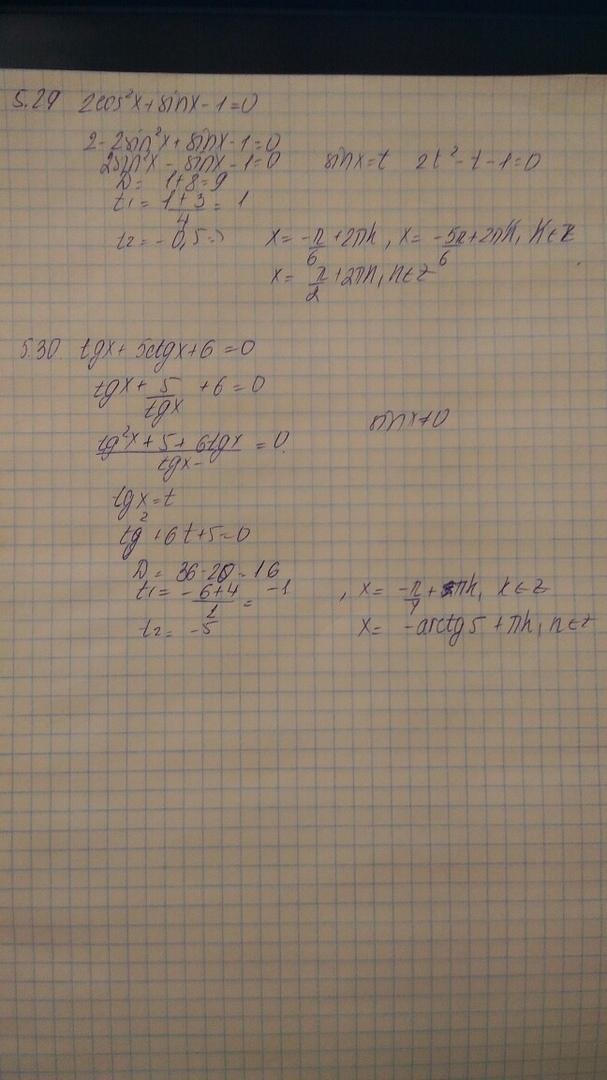 5.29 2cos²x+sinx-1=0
2-2sin²x+sinx-1=0
2sin²x-sinx-1=0 sinx=t 2t²-t-1=0
D= 1+8=9
t₁= (1+3)/4 = 1
t₂= -0,5 ⇒ x= -π/6+2πk, x= -5π/6+2πk, k∈z
x= π/2+2πn, n∈z
5.30. tgx+5ctgx+6=0
tgx+5/tgx+6=0
sinx≠0
(tg²x+5+6tgx)/tgx=0
tgx=t
tg²+6t+5=0
D= 36-20=16
t₁= (-6+4)/2 = -1 , x= -π/4+πk, k∈z
t₂= -5 x= -arctg5+πn, n∈z